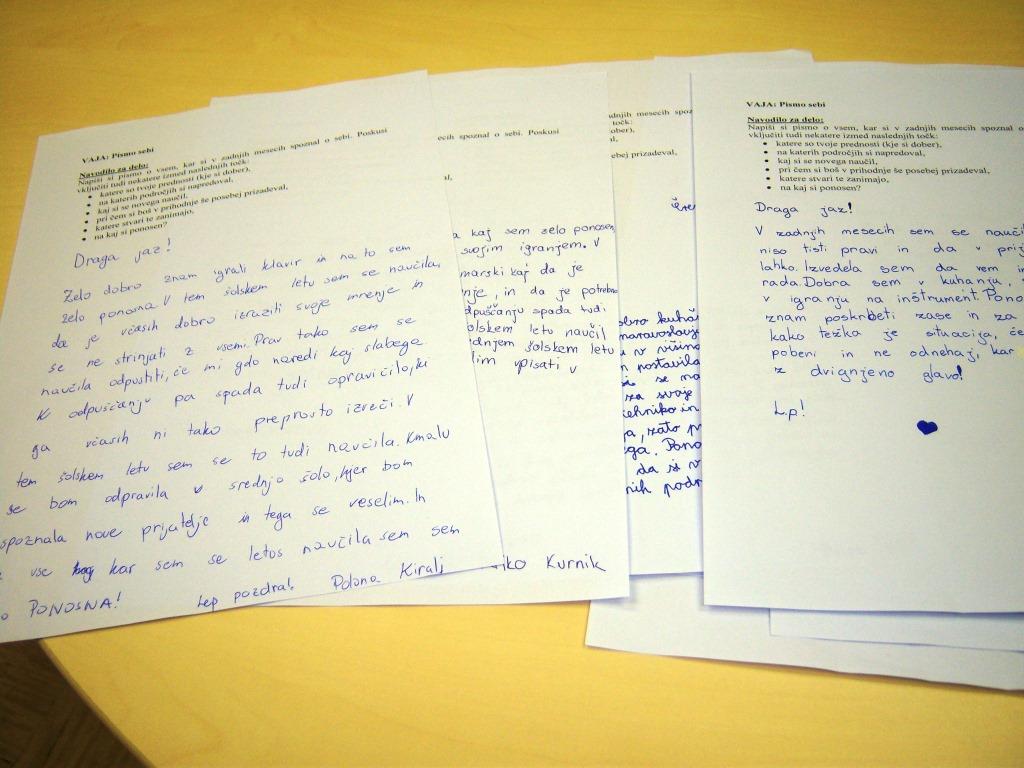 VAJA: Pismo sebi
Navodilo za delo:
Napiši si pismo o vsem, kar si v zadnjih mesecih spoznal o sebi. Poskusi
vključiti tudi nekatere izmed naslednjih točk:
katere so tvoje prednosti (kje si dober),
na katerih področjih si napredoval,
kaj si se novega naučil,
pri čem si boš v prihodnje še posebej prizadeval,
katere stvari te zanimajo,
na kaj si ponosen?
Draga jaz!
Zelo dobro znam igrati klavir in na to sem
zelo ponosna. V tem šolskem letu sem se naučila,
da je včasih dobro izraziti svoje mnenje in
se ne strinjati z vsemi. Prav tako sem se
naučila odpustiti, če mi gdo naredi kaj slabega
K odpuščanju pa spada tudi opravičilo, ki
ga včasih ni tako preprosto izreči. V
tem šolskem letu sem se to tudi naučila. Kmalu
se bom odpravila v srednjo šolo, kjer bom
spoznala nove prijatelje in tega se veselim. In
vse kar sem se letos naučila sem sem
PONOSNA!
Lep pozdrav! Polona Kiralj
spoznal o sebi. Poskusi
kaj sem zelo ponosen
svojim igranjem. V
kaj da je
in da je potrebno
spada tudi
letu naučil
šolskem letu
vpisati v
Kurnik
ober),
sebej prizadeval,
kuhá
naravoslovje
v višino
postavila
se na
za svoje
tehniko in
zato
Pono
da si v
podr
VAJA: Pismo sebi
Navodilo za delo:
Napiši si pismo o vsem, kar si v zadnjih mesecih spoznal o
vključiti tudi nekatere izmed naslednjih točk:
katere so tvoje prednosti (kje si dober),
na katerih področjih si napredoval,
kaj si se novega naučil,
pri čem si boš v prihodnje še posebej prizadeval,
katere stvari te zanimajo,
na kaj si ponosen?
Draga jaz!
V zadnjih mesecih sem se nauči
niso tisti pravi in da v prij
lahko. Izvedela sem da vem in
rada. Dobra sem v kuhanju,
v igranju na inštrument. Pono
znam poskrbeti zase in za
kako težka je situacija, če
poberi in ne odnehaj, kar
z dvignjeno glavo!
L.p!